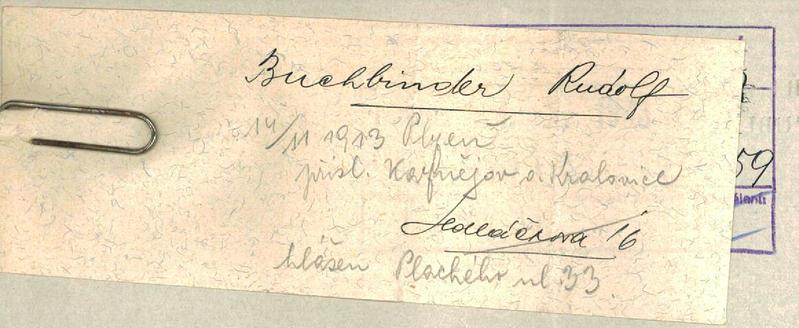 Buchbinder Rudolf
14/11 1913 Plzeň
přísl. Kazňějov o. Kralovice
Sedláčkova 16
hlášen Plachého ul 33
59